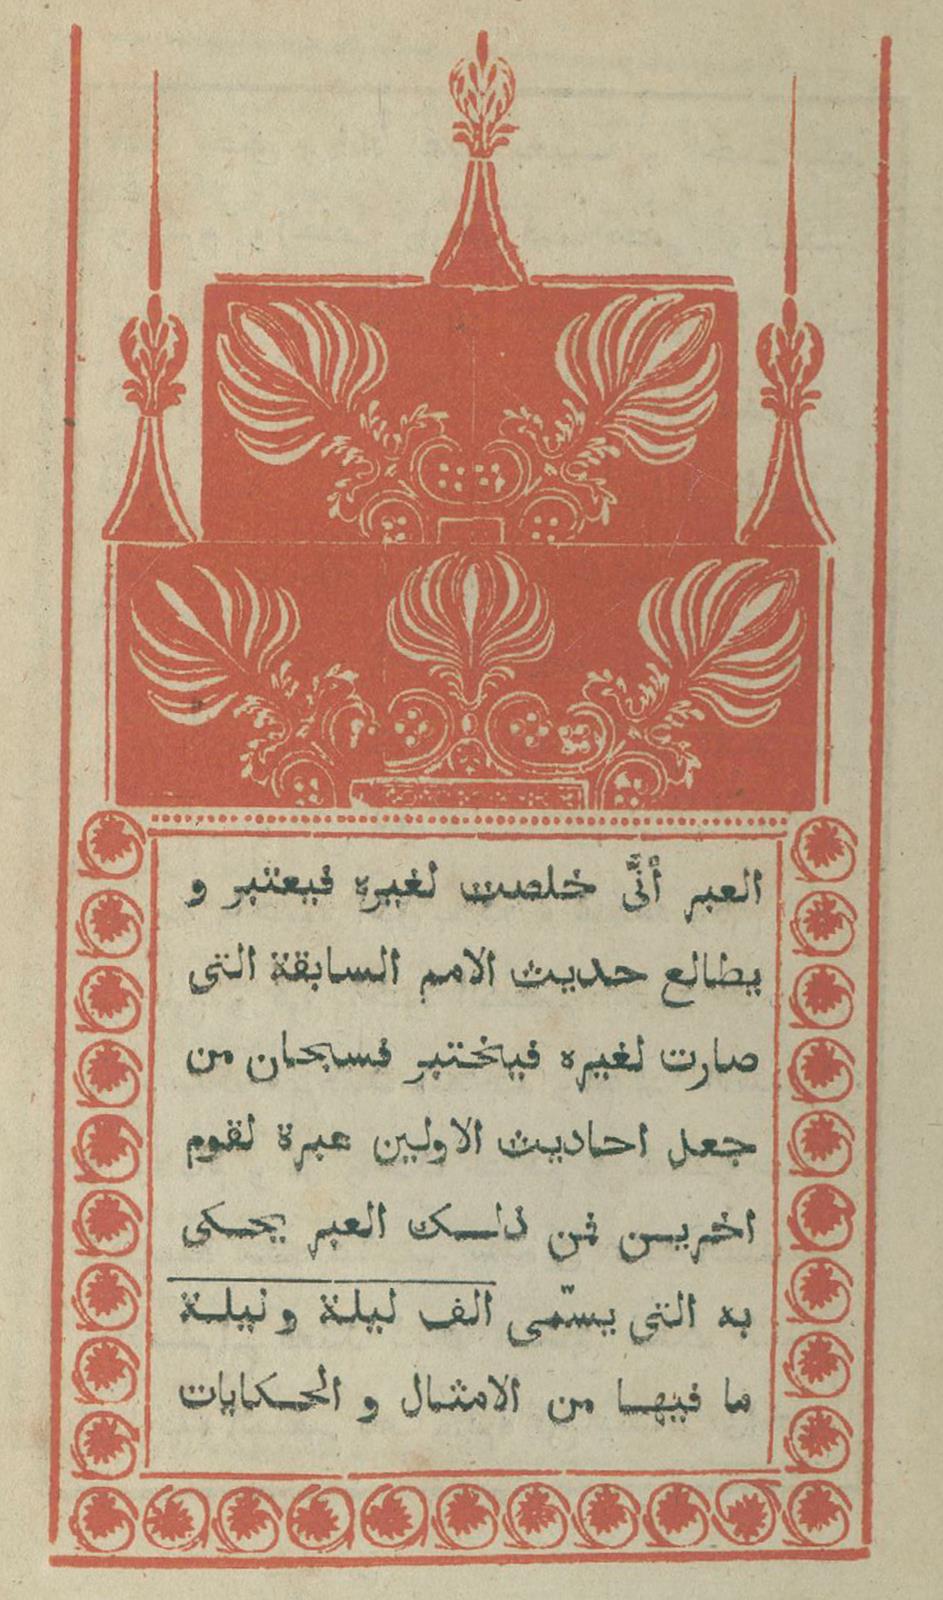 العبر أنّى خلصت لغيره فيعتبر و
يطالع حديث الامم السابقة التى
صارت لغيره فيختبر فسبحان من
جعل احاديث الاولين عبرة لقوم
اخريـن فمن ذلـك العبر يحـكى
به التى يسمّى الف ليلة وليلـة
ما فيهـا من الامثـال و الحـكايات